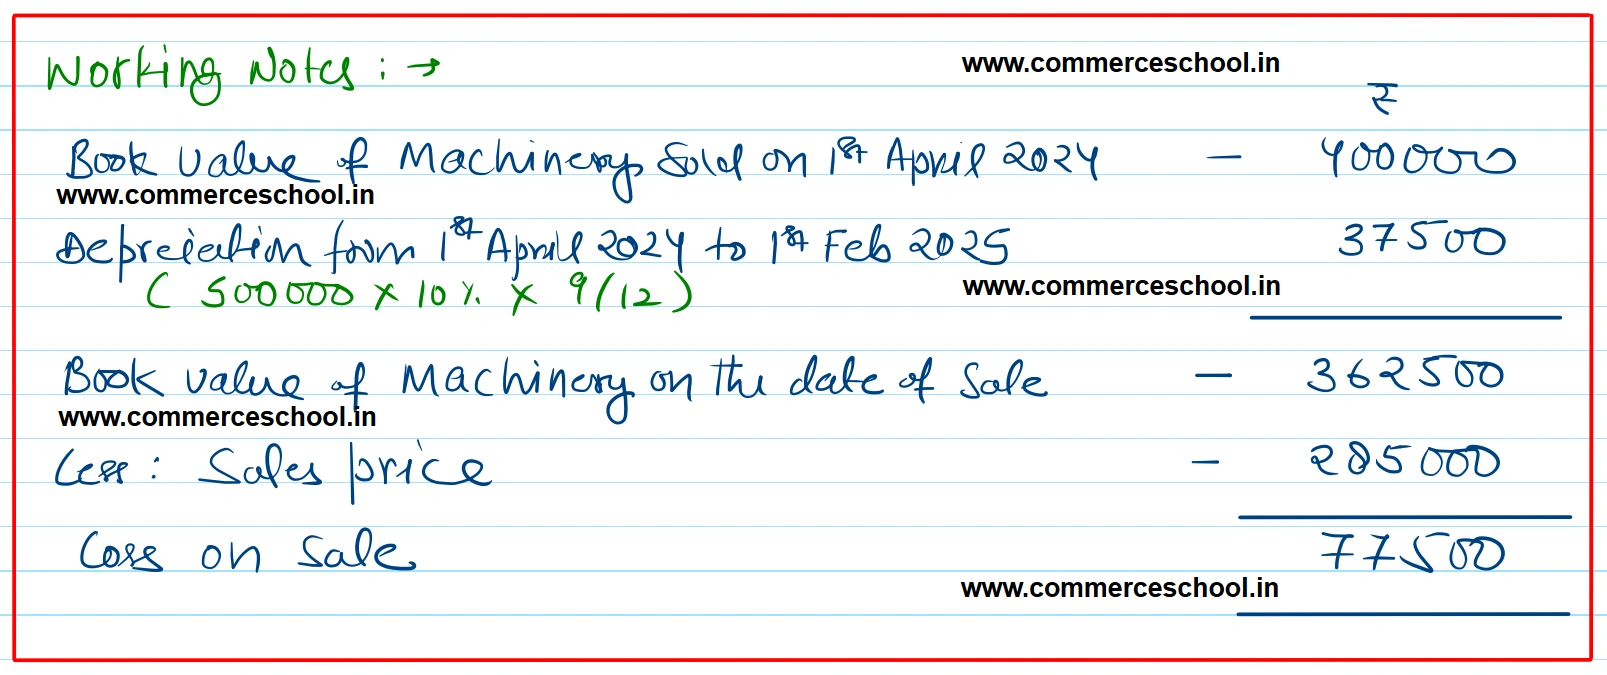 Working Notes : →
www.commerceschool.in
₹
Book value of Machinery Sold on 1st April 2024 - 400000
www.commerceschool.in
Depreciation from 1st April 2024 to 1st Feb 2025 37500
( 500000 x 10% x 9/12)
www.commerceschool.in
Book value of Machinery on the date of Sale - 362500
www.commerceschool.in
Less : Sales price - 285000
Loss on Sale 77500
www.commerceschool.in